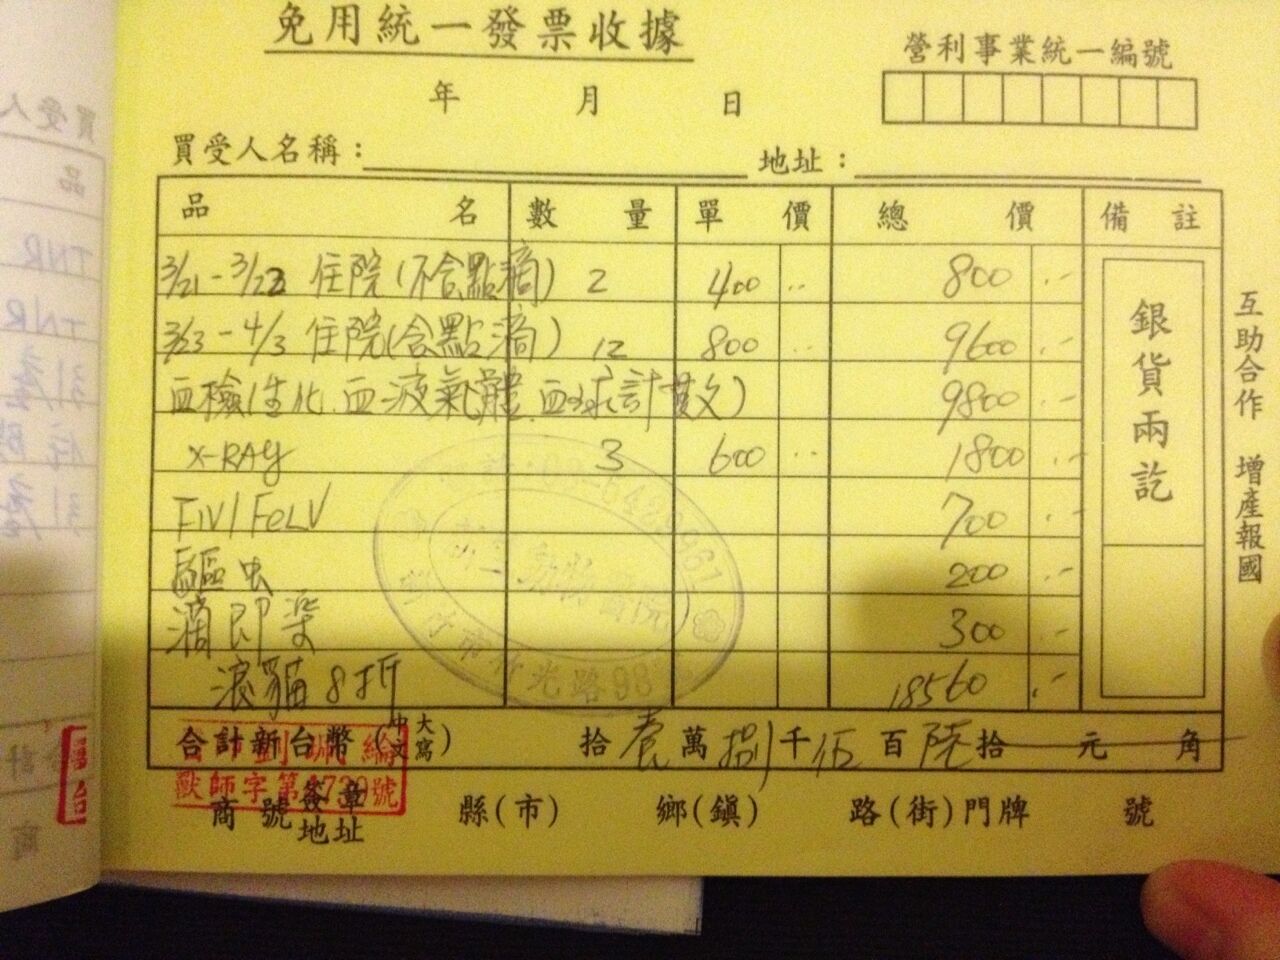 免用統一發票收據
營利事業統一編號
年 月 日
買受人名稱： 地址：
品名 數量 單價 總價 備註
3/21-3/22 住院(不含點滴) 2 400 .. 800 .-
3/23-4/3 住院(含點滴) 12 800 .. 9600 .-
血檢(生化.血液氣體.血球計數) 9800 .-
X-RAY 3 600 .. 1800 .-
FIV/FeLV 700 .-
驅虫 200 .-
滴即樂 300 .-
浪貓8折 18560 .-
合計新台幣(中文大寫) 拾壹萬捌千伍百陸拾元角
商號簽章地址 縣(市) 鄉(鎮) 路(街)門牌 號
銀貨兩訖
互助合作 增產報國
動物醫院
新竹市竹光路98
獸師字第 號
買受人
品
TNR
TNR
引產
住院